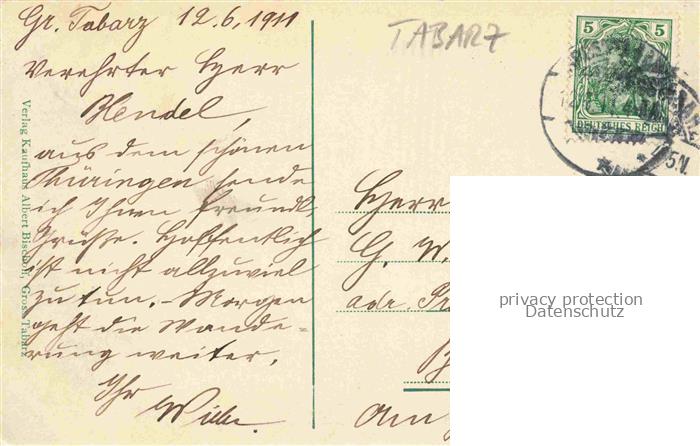 Gr. Tabarz 12.6,1911
Verehrter Herr
Blendel,
aus dem schönen
Thüringen sende
ich Ihnen freundl.
Grüße. Hoffentlich
ist nicht allzuviel
zu tun. – Morgen
geht die Wande=
rung weiter.
Ihr
Verlag Kaufhaus Albert Bischoff, Gross Tabarz
TABARZ
5 5
DEUTSCHES REICH
5N.
Herrn
G. W.
adr.
am
privacy protection
Datenschutz